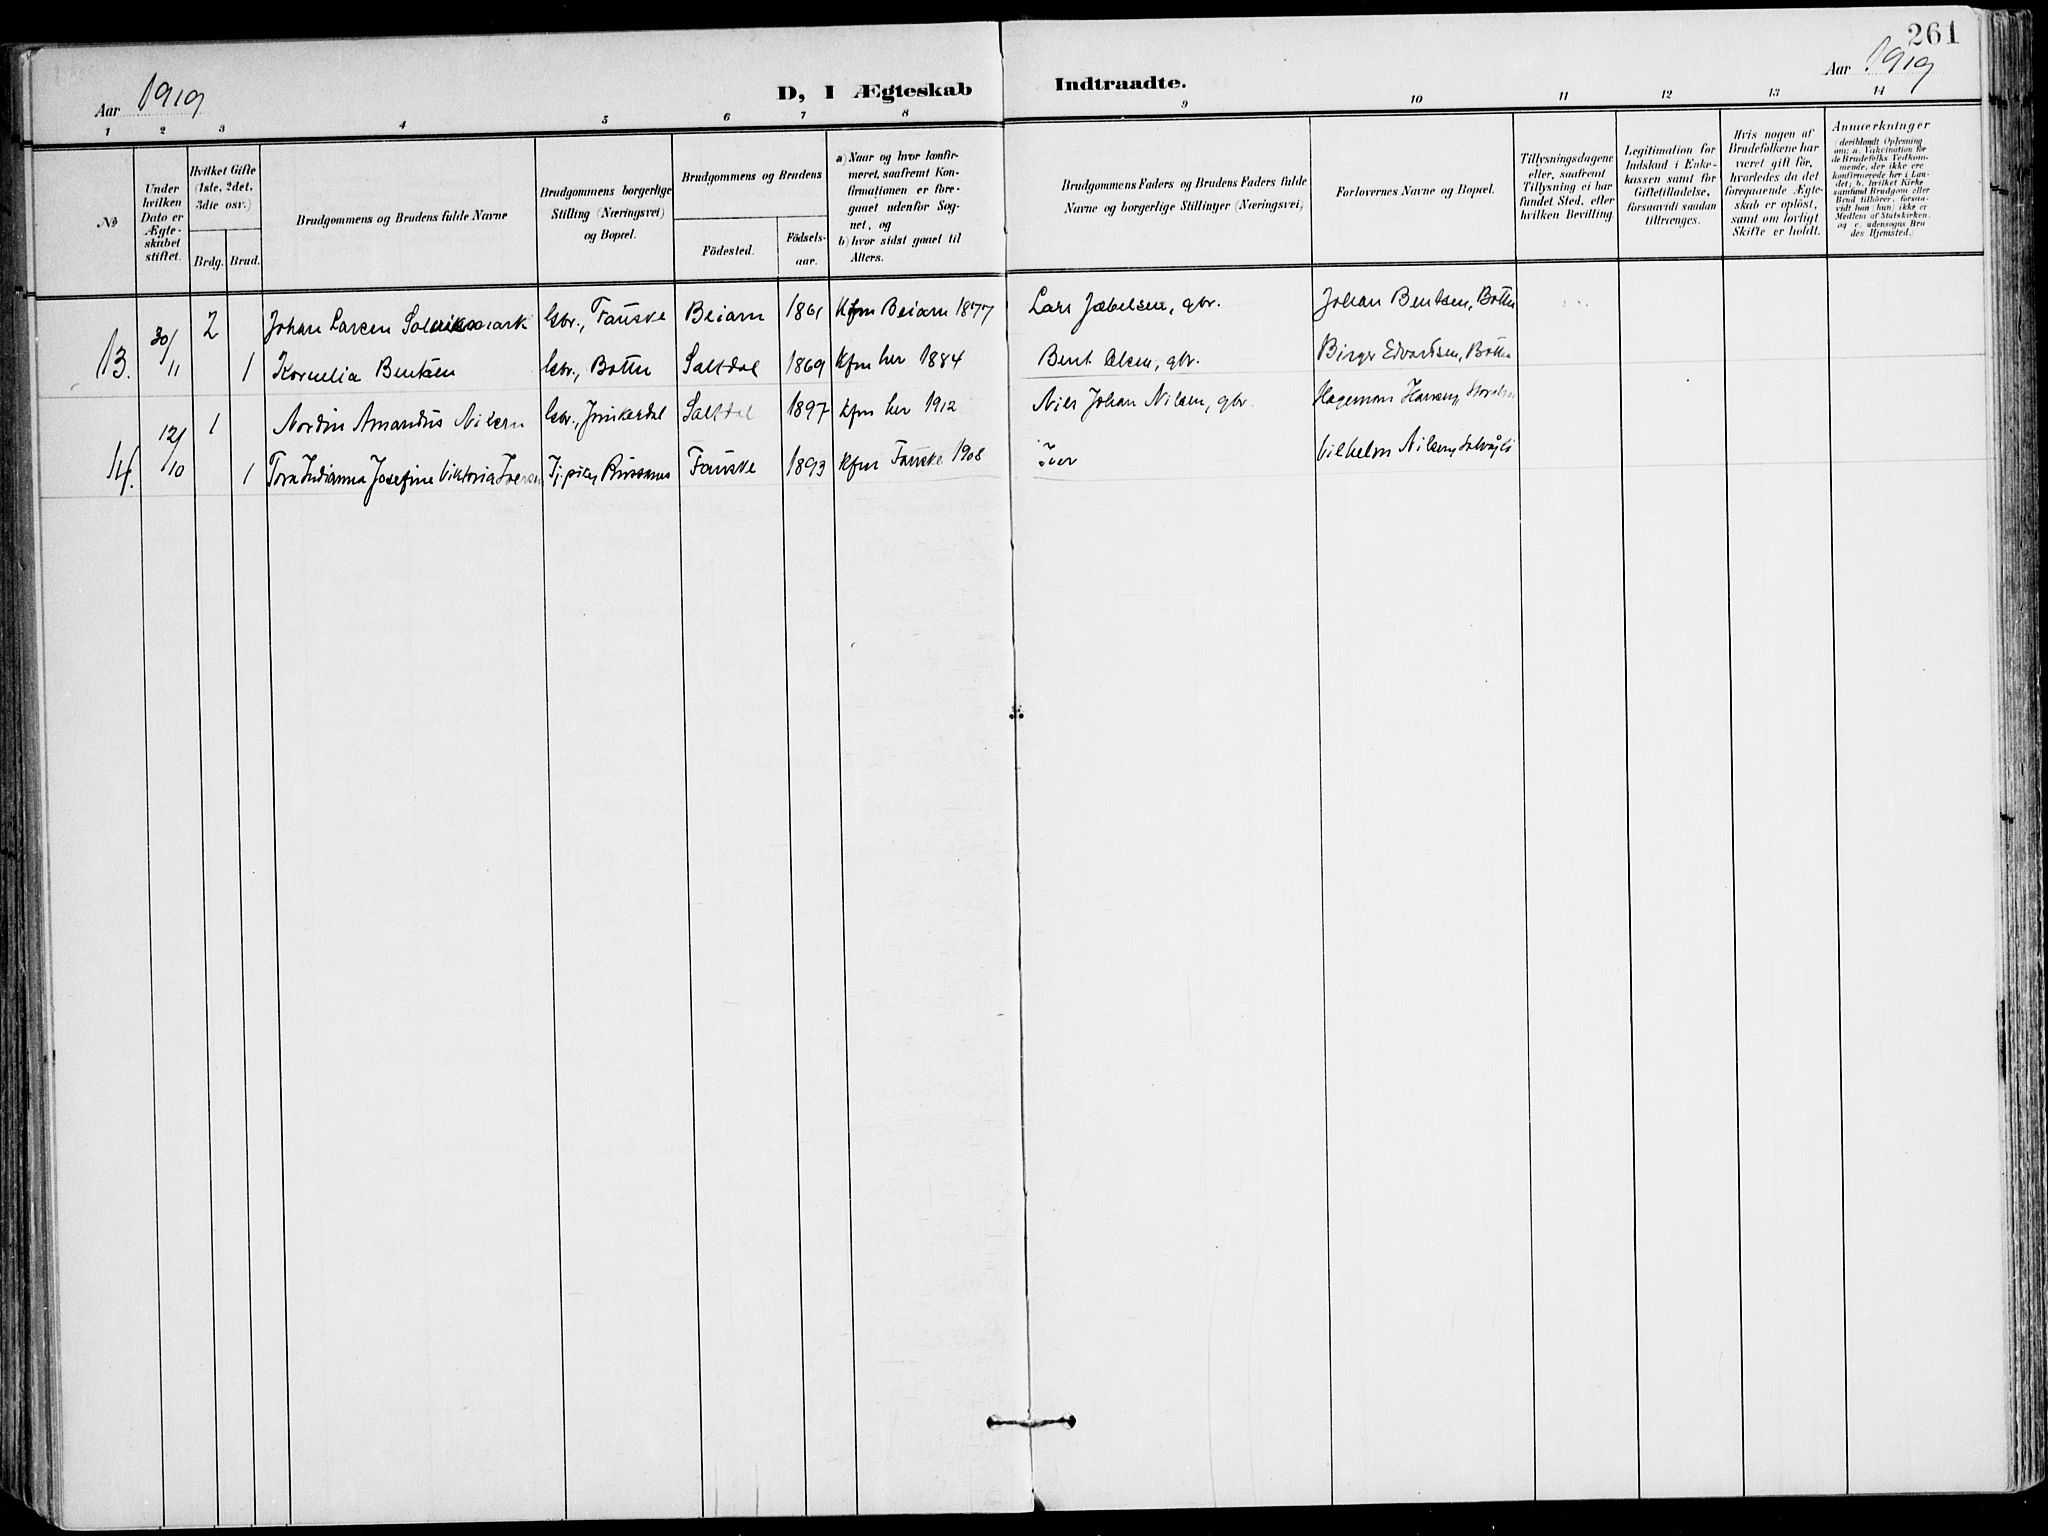 261
Aar 1919
D, I Ægteskab Indtraadte.
Aar 1919
1 2 3 4 5 6 7 8 9 10 11 12 13 14
No
Under
hvilken
Dato er
Ægte-
skabet
stiftet.
Hvilket Gifte
(1ste, 2det,
3die osv.)
Brdg. Brud.
Brudgommens og Brudens fulde Navne
Brudgommens borgerlige
Stilling (Næringsvei)
og Bopæl.
Brudgommens og Brudens
Födested.
Födsels-
aar.
a) Naar og hvor konfir-
meret, saafremt Kon-
firmationen er fore-
gaaet udenfor Sog-
net, og
b) hvor sidst gaaet til
Alters.
Brudgommens Faders og Brudens Faders fulde
Navne og borgerlige Stillinger (Næringsvei)
Forlovernes Navne og Bopæl.
Tillysningsdagene
eller, saafremt
Tillysning ei har
fundet Sted, efter
hvilken Bevilling.
Legitimation for
Indskud i Enke-
kassen samt for
Giftetilladelse,
forsaavidt saadan
tiltrænges.
Hvis nogen af
Brudefolkene har
været gift för,
hvorledes da det
foregaaende Ægte-
skab er oplöst,
samt om lovligt
Skifte er holdt.
Anmærkninger
(deriblandt Oplysning
om: a. Vakcination for
de Brudefolks Vedkom-
mende, der ikke ere
konfirmerede her i Lan-
det; b. hvilket Kirke
samfund Brudgom eller
Brud tilhörer, forsaa-
vidt han (hun) ikke er
Medlem af Statskirken.
og c. udensogns Bru
des Hjemsted.)
13. 30/11 2 Johan Larsen Gbr., Fauske Beiarn 1861 Kfm Beiarn 1877 Lars Jæbelsen, gbr. Johan Bentsen, Botten
1 Kornelia Bentsen Gbr., Botten Saltdal 1869 Kfm her 1884 Bent Olsen, gbr. Birger Edvardsen, Botten
14. 12/10 1 Nordin Amandus Nilsen Gbr., Junkerdal Saltdal 1897 Kfm her 1912 Nils Johan Nilsen, gbr. Hageman Hansen,
1 Tora Indianna Josefine Viktoria Iversen Tj.pike, Fauske 1893 Kfm Fauske 1908 Iver Vilhelm Nilsen,